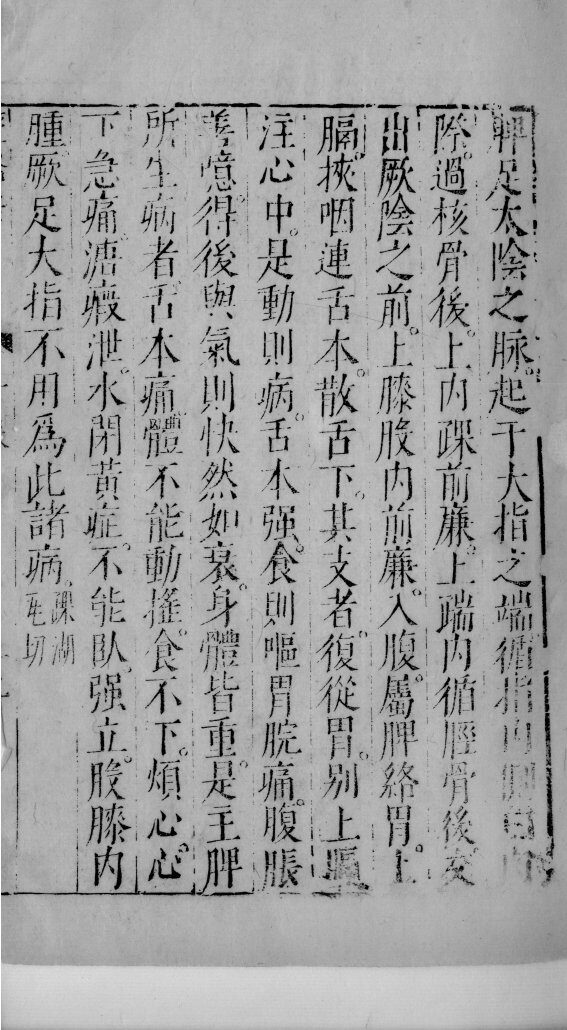 脾足太陰之脉。起于大指之端循指内側白肉
際。過核骨後。上内踝前廉。上踹内循脛骨後交
出厥陰之前。上膝股内前廉。入腹。屬脾絡胃。上
膈。挾咽連舌本。散舌下。其支者。復從胃。別上膈
注心中。是動則病。舌本强。食則嘔胃脘痛。腹脹
善憶。得後與氣則快然如衰。身體皆重。是主脾
所生病者。舌本痛體不能動摇。食不下。煩心心
下急痛溏瘕泄。水閉黄疸。不能臥。强立股膝内
腫厥足大指不用爲此諸病。踝湖瓦切